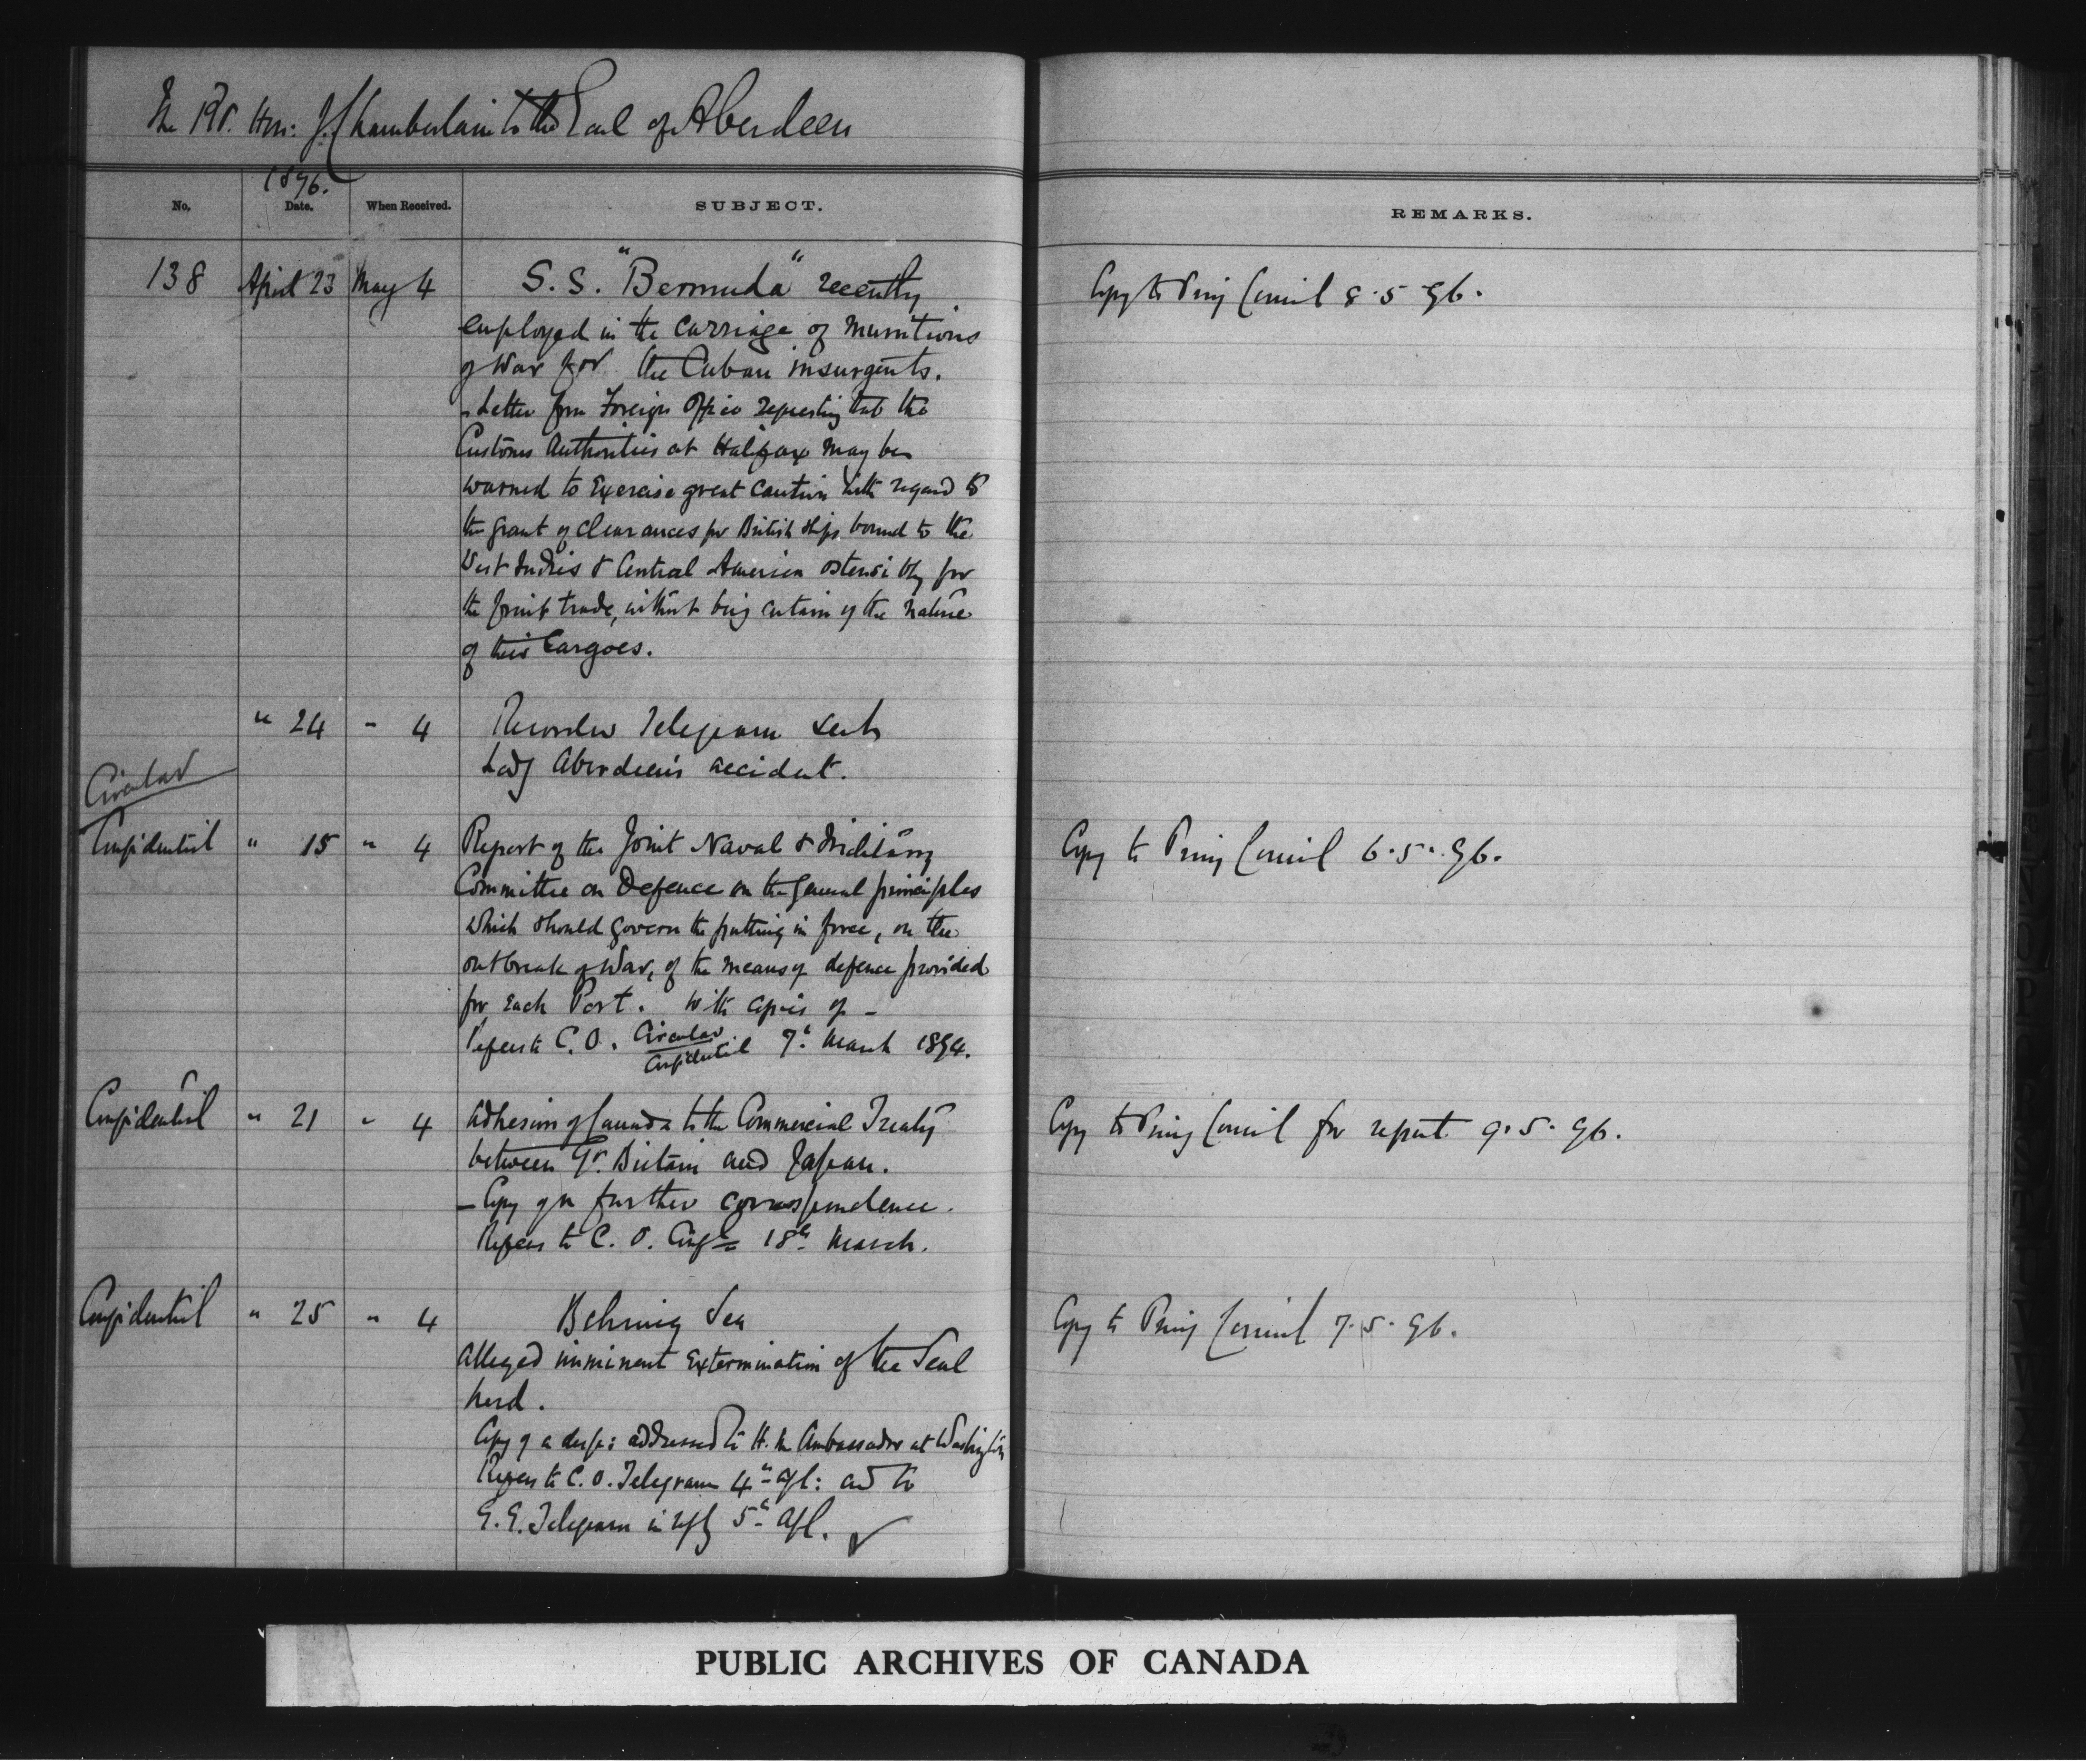 The Rt. Hon: J. Chamberlain to the Earl of Aberdeen
1896.
No. Date. When Received. SUBJECT. REMARKS.
138 April 23 May 4 S. S. "Bermuda" recently Copy to Privy Council 8.5.96.
employed in the carriage of munitions
of War for the Cuban insurgents.
- Letter from Foreign Office requesting that the
Customs Authorities at Halifax may be
warned to Exercise great caution with regard to
the grant of clearances for British ships bound to the
West Indies & Central America ostensibly for
the fruit trade, without being certain of the nature
of their Cargoes.
" 24 " 4 Telegram
Lady Aberdeen's accident.
Circular
Confidential " 15 " 4 Report of the Joint Naval & Military Copy to Privy Council 6.5.96.
Committee on Defence on the general principles
which should govern the putting in force, on the
outbreak of War, of the means of defence provided
for Each Port. With copies of -
Refers to C.O. Circular Confidential 7th March 1894.
Confidential " 21 " 4 Adhesion of Canada to the Commercial Treaty Copy to Privy Council for report 9.5.96.
between Gt. Britain and Japan.
- Copy of further correspondence.
Refers to C. O. Confl 18th March.
Confidential " 25 " 4 Behring Sea Copy to Privy Council 7.5.96.
Alleged imminent Extermination of the Seal
herd.
Copy of a desp: addressed to H. M Ambassador at Washington
Refers to C. O. Telegram 4th Apl: and to
G. G. Telegram in reply 5th Apl.
PUBLIC ARCHIVES OF CANADA